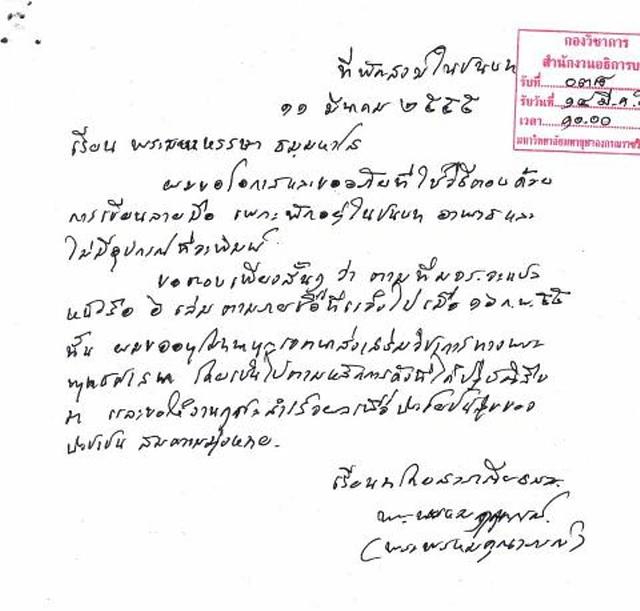 กองวิชาการ
สำนักงานอธิการบ
รับที่ ๐๓๘
รับวันที่ ๑๔ มี.ค.
เวลา ๑๐.๐๐
มหาวิทยาลัยมหาจุฬาลงกรณราชวิ
ที่พักสงฆ์ในชนบท
๑๑ มีนาคม ๒๕๕๕
เรียน พระมหาหรรษา ธมฺมหาโส
ผมขอโอกาสและขออภัยที่ใช้วิธีตอบด้วย
การเขียนลายมือ เพราะพักอยู่ในชนบท อาพาธ และ
ไม่มีอุปกรณ์ที่จะพิมพ์
ขอตอบเพียงสั้นๆ ว่า ตามที่ มจร. จะแปล
หนังสือ ๖ เล่ม ตามรายชื่อที่แจ้งไป เมื่อ ๑๖ ก.พ. ๕๕
นั้น ผมขออนุโมทนา ส่งเสริมวิชาการทางพระ
พุทธศาสนา โดยเป็นไปตามหลักการดังที่ได้ปฏิบัติ
มา และขอให้งานกุศลสำเร็จผลเพื่อประโยชน์สุขของ
ประชาชน สมความมุ่งหมาย.
เรียนมาโดยสาราณียธรรม
(พระพรหมคุณาภรณ์)